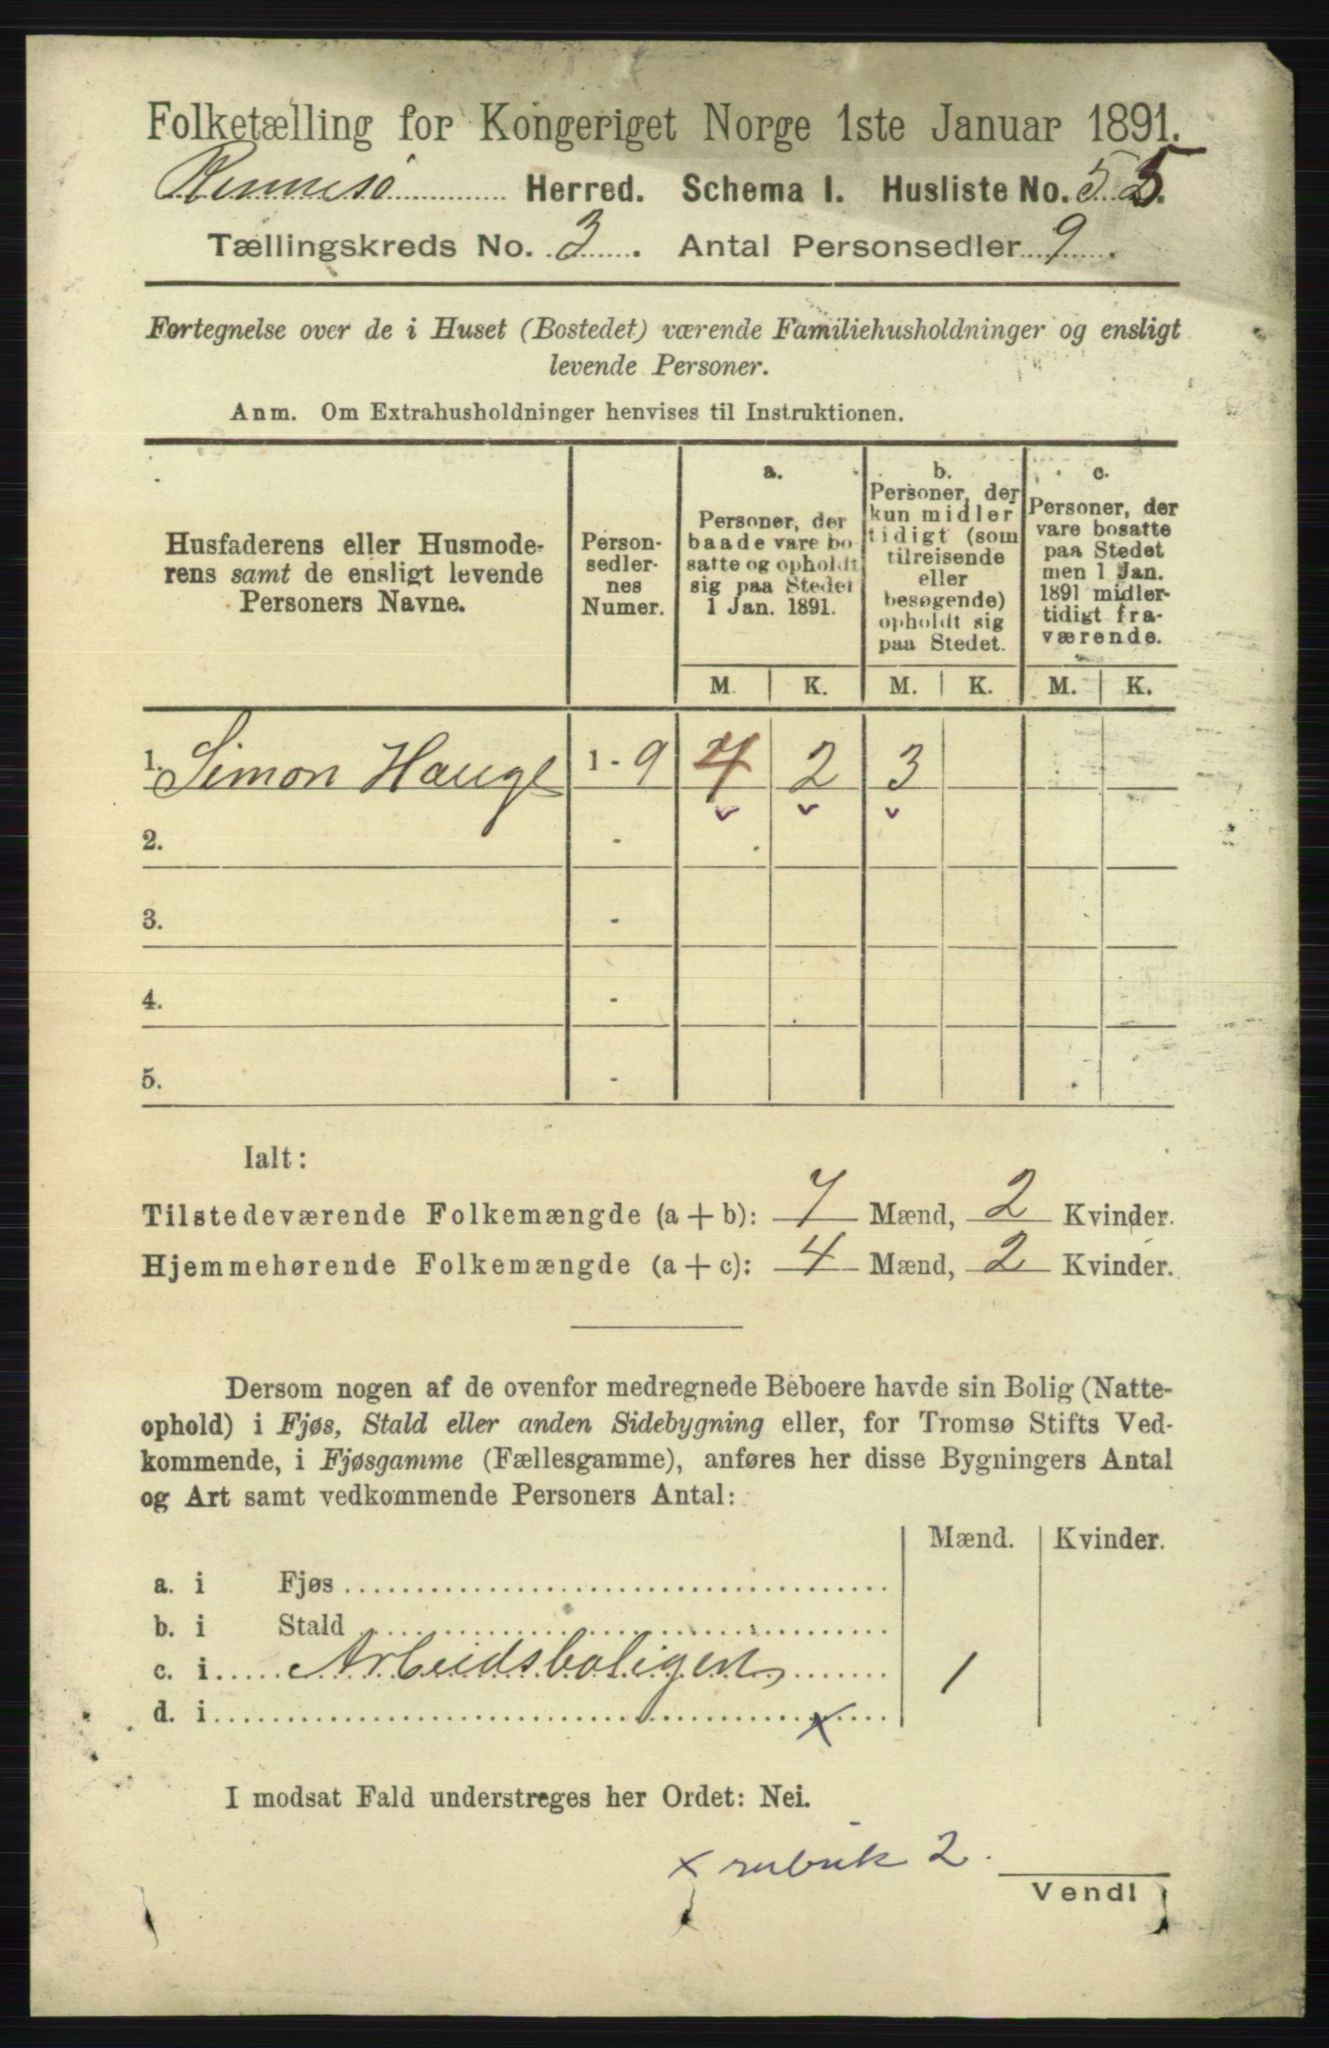 Folketælling for Kongeriget Norge 1ste Januar 1891.
Rennesö Herred. Schema I. Husliste No. 55.
Tællingskreds No. 3. Antal Personsedler 9.
Fortegnelse over de i Huset (Bostedet) værende Familiehusholdninger og ensligt
levende Personer.
Anm. Om Extrahusholdninger henvises til Instruktionen.
Husfaderens eller Husmode-
rens samt de ensligt levende
Personers Navne.
Person-
sedler-
nes
Numer.
a.
Personer, der
baade vare bo-
satte og opholdt
sig paa Stedet
1 Jan. 1891.
b.
Personer, der
kun midler
tidigt (som
tilreisende
eller
besøgende)
opholdt sig
paa Stedet.
c.
Personer, der
vare bosatte
paa Stedet
men 1 Jan.
1891 midler-
tidigt fra-
værende.
M. K. M. K. M. K.
1. Simon Hauge 1 - 9 4 2 3
2. -
3. -
4. -
5. -
Ialt:
Tilstedeværende Folkemængde (a + b): 7 Mænd, 2 Kvinder.
Hjemmehørende Folkemængde (a + c): 4 Mænd, 2 Kvinder.
Dersom nogen af de ovenfor medregnede Beboere havde sin Bolig (Natte-
ophold) i Fjøs, Stald eller anden Sidebygning eller, for Tromsø Stifts Ved-
kommende, i Fjøsgamme (Fællesgamme), anføres her disse Bygningers Antal
og Art samt vedkommende Personers Antal:
Mænd. Kvinder.
a. i Fjøs
b. i Stald
c. i Arbeidsboligen 1
d. i x
I modsat Fald understreges her Ordet: Nei.
x rubrik 2.
Vend!